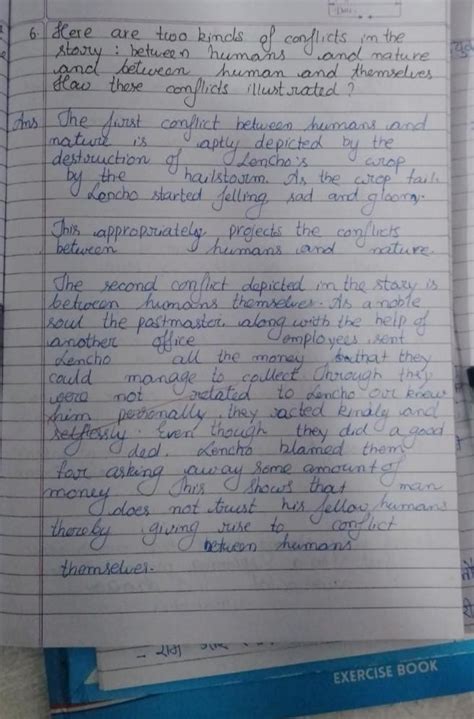 6. Here are two kinds of conflicts in the
story : between humans and nature
and between human and themselves
How these conflicts illustrated ?
Ans The first conflict between humans and
nature is aptly depicted by the
destruction of Lencho's crop
by the hailstorm. As the crop fail
Lencho started felling sad and gloomy.
This appropriately projects the conflicts
between humans and nature.
The second conflict depicted in the story is
between humans themselves. As a noble
soul the postmaster along with the help of
another office employees sent
Lencho all the money that they
could manage to collect. Through they
were not related to Lencho our know
him personally, they acted kindly and
selflessly. Even though they did a good
ded. Lencho blamed them
for asking away some amount of
money. This shows that man
does not trust his fellow humans
thereby giving rise to conflict
between humans
themselves.
EXERCISE BOOK